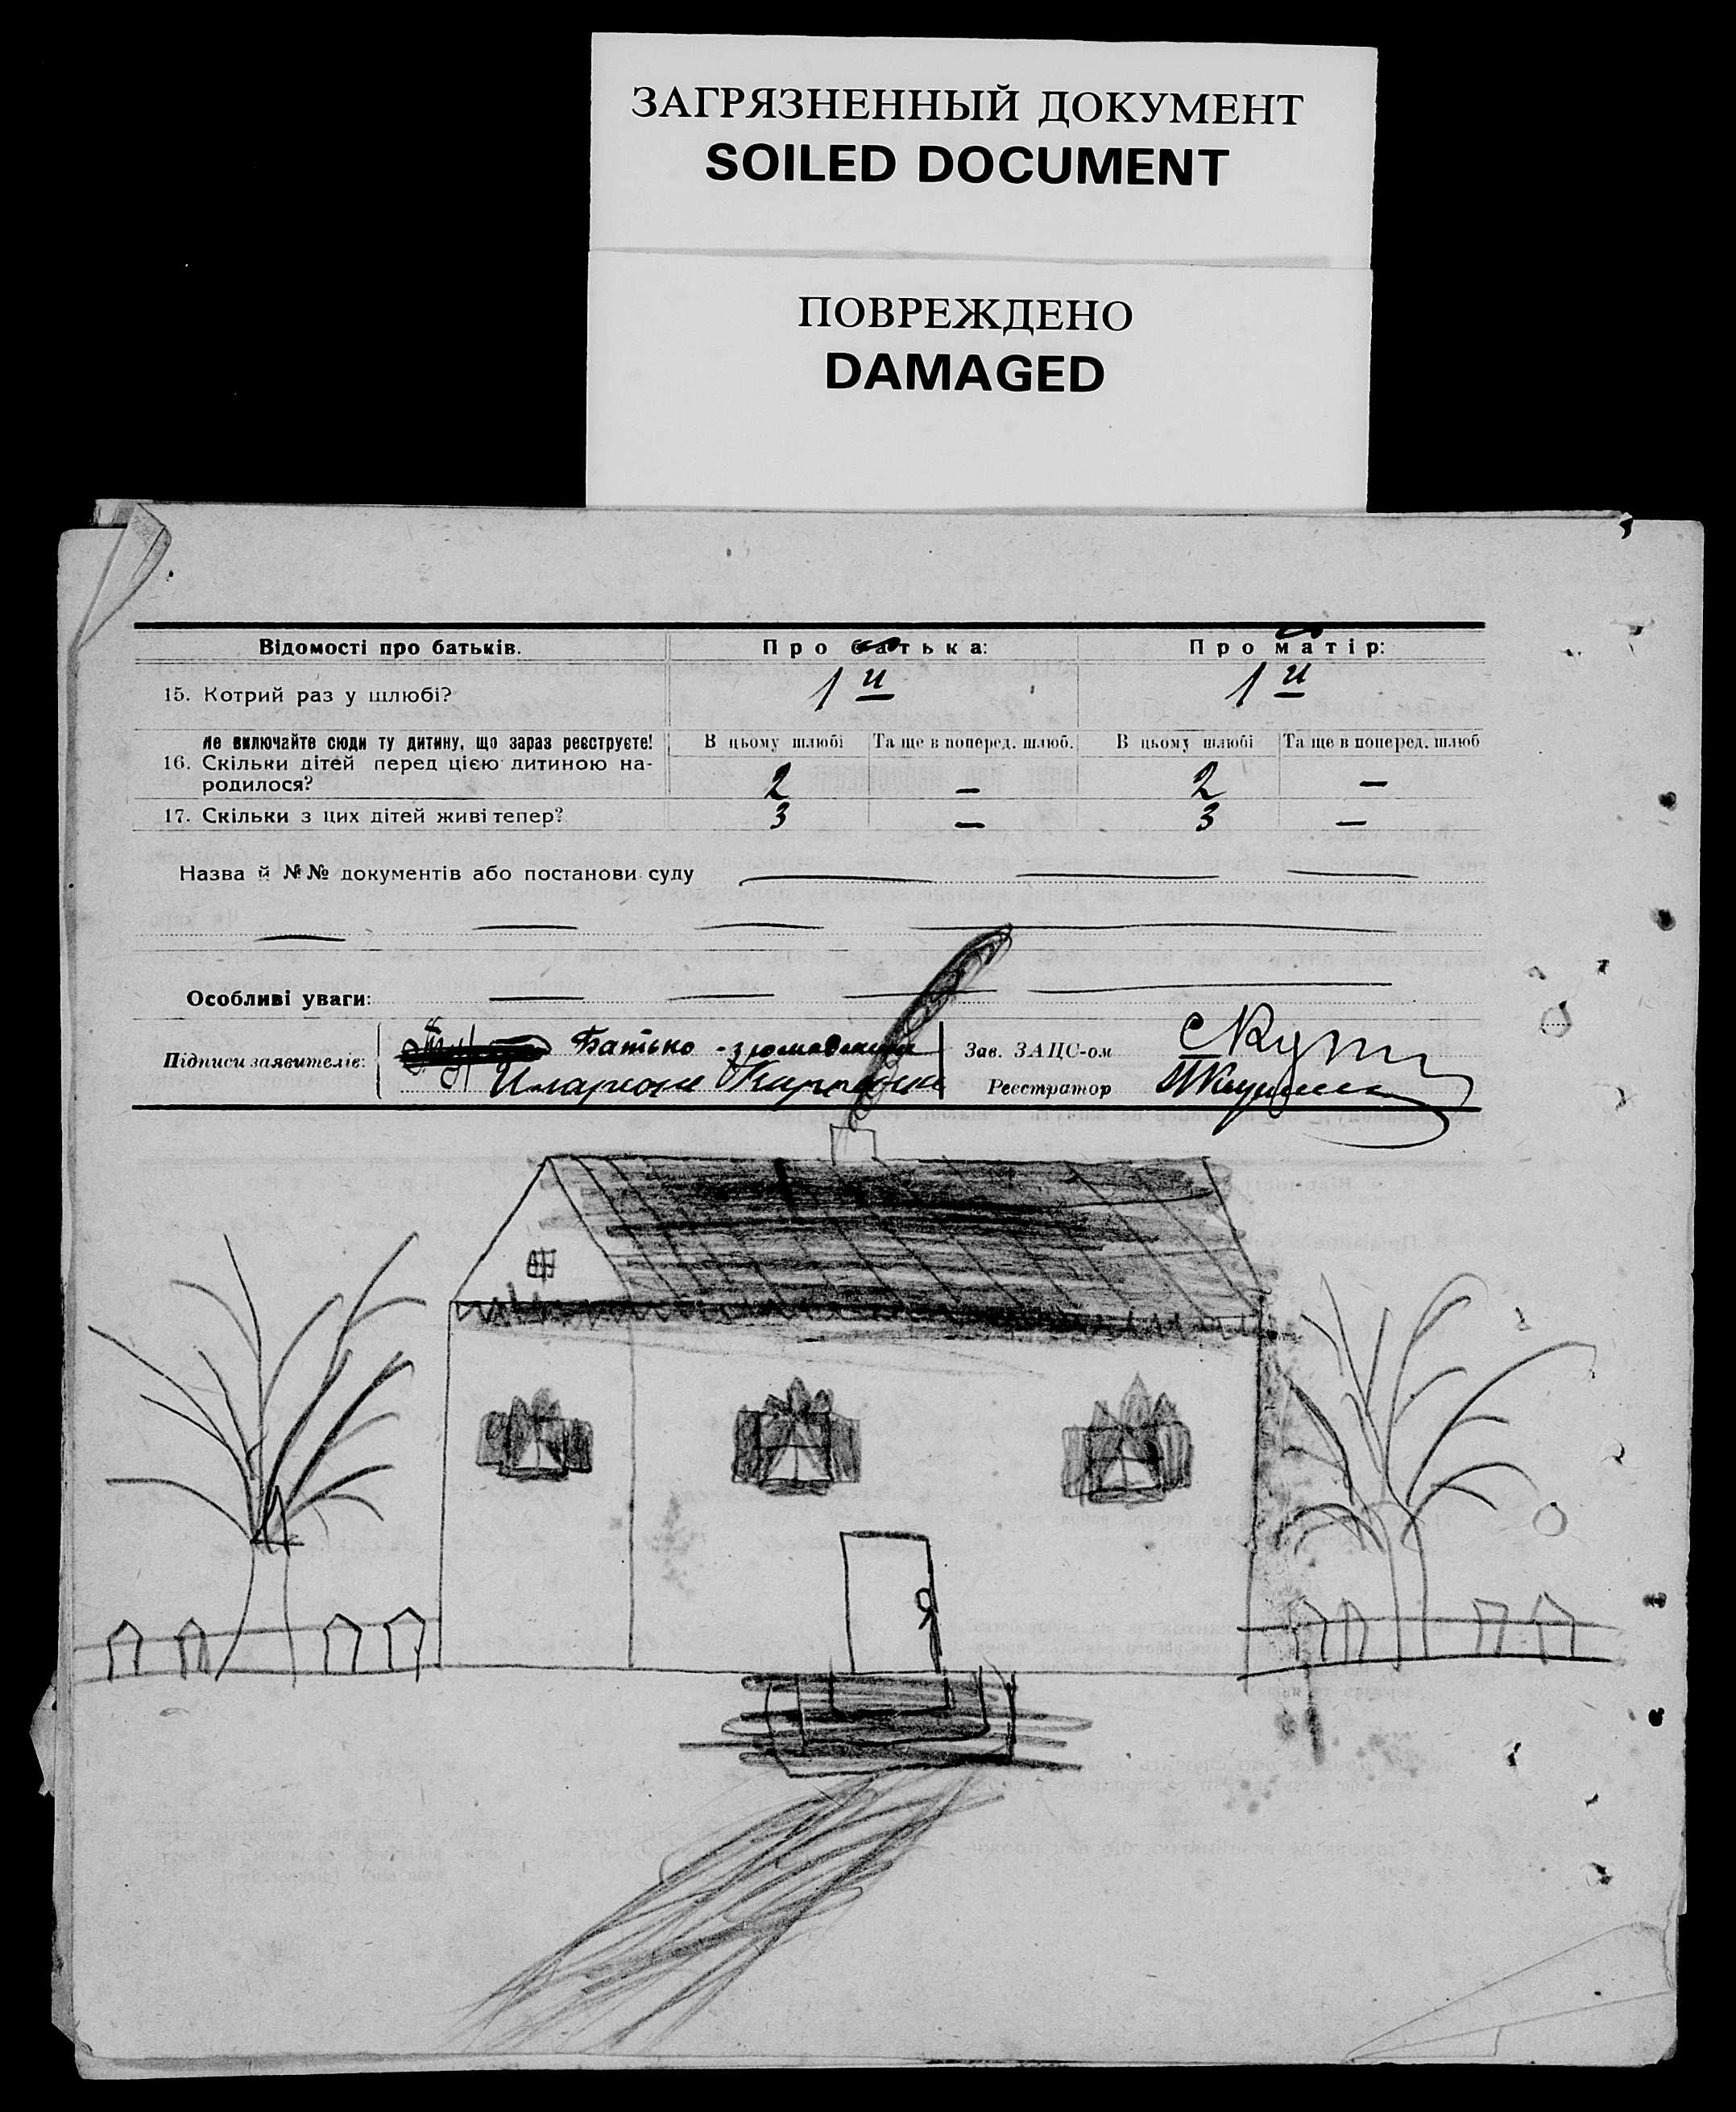 ЗАГРЯЗНЕННЫЙ ДОКУМЕНТ
SOILED DOCUMENT
ПОВРЕЖДЕНО
DAMAGED
Відомості про батьків. Про батька: Про матір:
15. Котрий раз у шлюбі? 1й 1й
Не включайте сюди ту дитину, що зараз реєструєте! В цьому шлюбі Та ще в поперед. шлюб. В цьому шлюбі Та ще в поперед. шлюб
16. Скільки дітей перед цією дитиною на-
родилося? 2 — 2 —
17. Скільки з цих дітей живі тепер? 3 — 3 —
Назва й №№ документів або постанови суду
Особливі уваги:
Підписи заявителів: Батько Зав. ЗАЦС-ом
Реєстратор